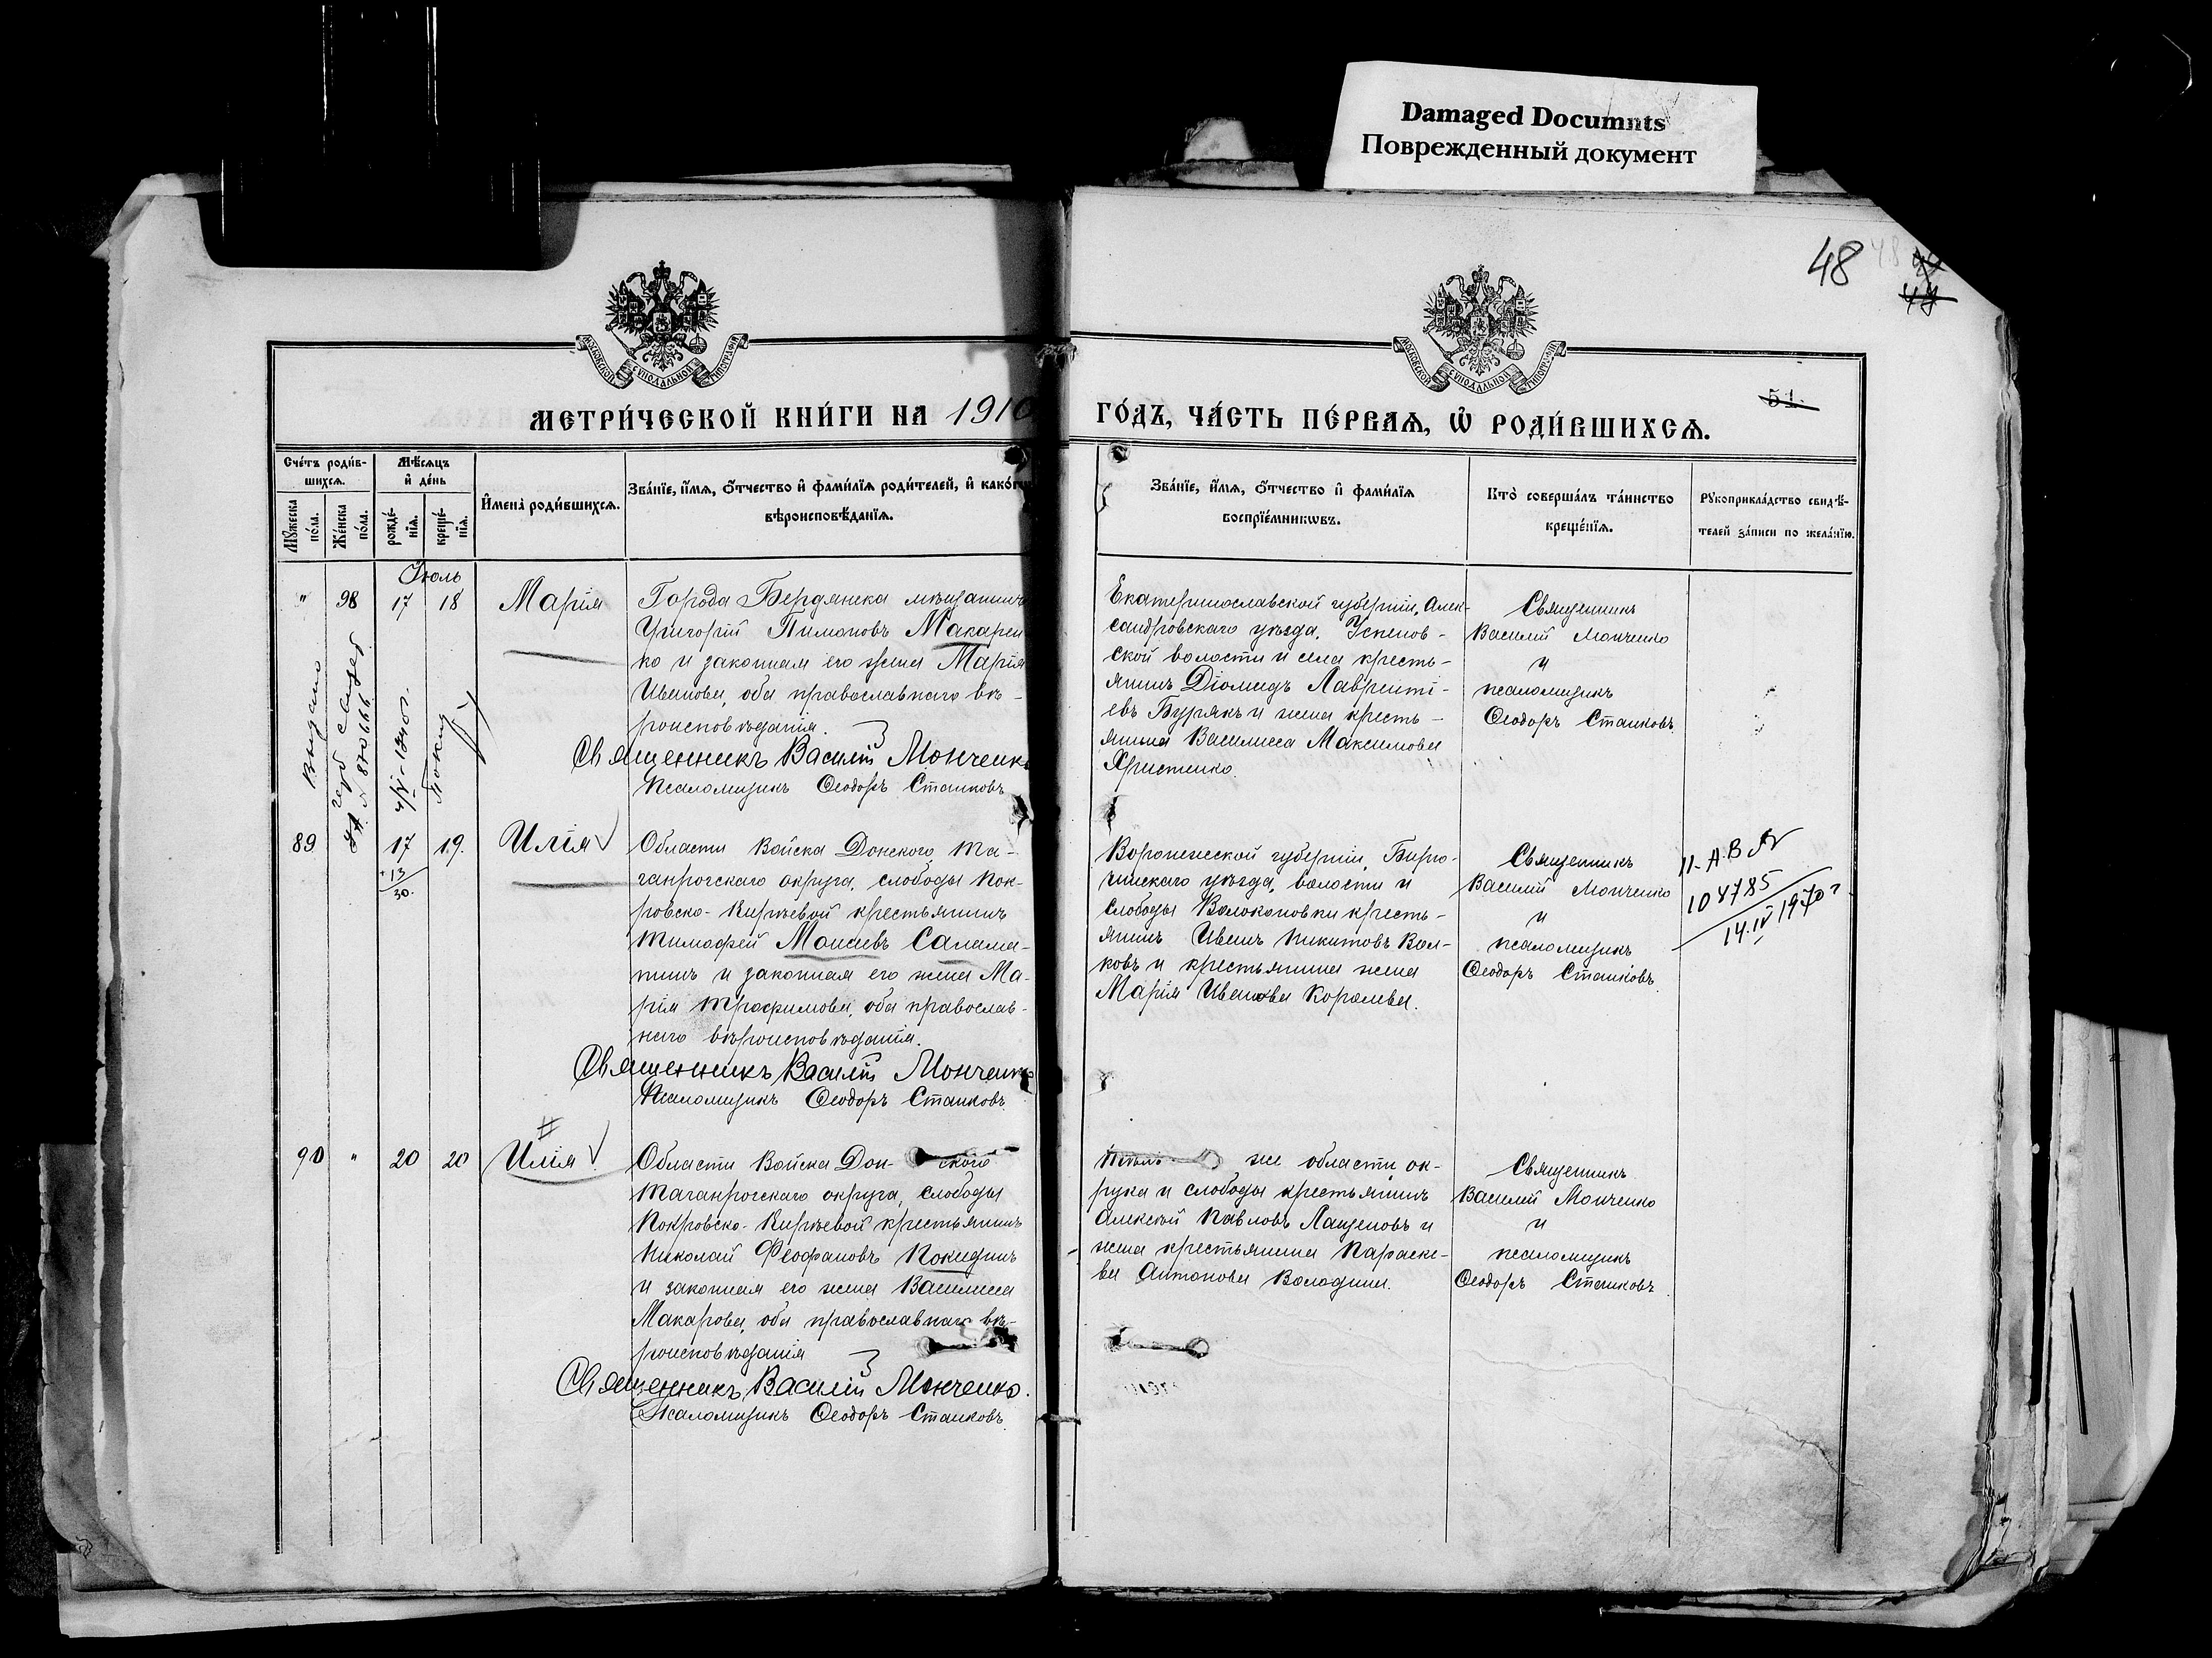 Damaged Documnts
Поврежденный документ
48
МОСКОВСКОЙ СѴНОДАЛЬНОЙ ТИПОГРАФІИ
МОСКОВСКОЙ СѴНОДАЛЬНОЙ ТИПОГРАФІИ
51.
МЕТРИ́ЧЕСКОЙ КНИ́ГИ НА 1910
ГО́ДЪ, ЧА́СТЬ ПЕ́РВАѦ, Ѽ РОДИ́ВШИХСѦ.
Сче́тъ роди́в-
шихсѧ.
Мѣ́сѧцъ
и҆ де́нь
Мꙋ́жеска
по́ла.
Же́нска
по́ла.
рожде́-
нїѧ.
креще́-
нїѧ.
И҆мена̀ роди́вшихсѧ.
Зва́нїе, и҆́мѧ, ѻ҆́тчество и҆ фами́лїѧ роди́телей, и҆ како́гѡ
вѣроисповѣ́данїѧ.
Зва́нїе, и҆́мѧ, ѻ҆́тчество и҆ фами́лїѧ
воспрїе́мникѡвъ.
Кто̀ соверша́лъ та́инство
креще́нїѧ.
Рꙋкоприкла́дство свидѣ́-
телей за́писи по жела́нїю.
Іюль
" 98 17 18 Марія
Города Бердянска мѣщанинъ
Григорій Пимоновъ Макарен
ко и законная его жена Марія
Иванова, оба православнаго вѣ-
роисповѣданія.
Священникъ Василій Монченко
Псаломщикъ Ѳеодоръ Станковъ
Екатеринославской губерніи, Алек-
сандровскаго уѣзда, Успенов-
ской волости и села кресть-
янинъ Діомидъ Лавренті-
евъ Бурякъ и жена кресть-
янина Василиса Максимова
Христенко.
Священникъ
Василій Монченко
и
псаломщикъ
Ѳеодоръ Станковъ
Выдано
№ 870666
89 17 19. Илія
+13
30.
Области Войска Донского, Та-
ганрогскаго округа, слободы Пок-
ровско-Кирѣевой крестьянинъ
Тимофей Моисеевъ Салама-
тинъ и законная его жена Ма-
рія Трофимова, оба православ-
наго вѣроисповѣданія.
Священникъ Василій Монченко
Псаломщикъ Ѳеодоръ Станковъ
Воронежской губерніи, Бирю-
ченскаго уѣзда, волости и
слободы Волоконовки кресть-
янинъ Иванъ Никитовъ Вол-
ковъ и крестьянина жена
Марія Иванова Королева.
Священникъ
Василій Монченко
и
псаломщикъ
Ѳеодоръ Станковъ
II-АВ №
104785
14.IV 1970г
90 " 20 20 Илія
Области Войска Дон-ского
Таганрогскаго округа, слободы
Покровско-Кирѣевой крестьянинъ
Николай Феофановъ Покидинъ
и законная его жена Василиса
Макарова, оба православнаго вѣ-
роисповѣданія
Священникъ Василій Мончено.
Псаломщикъ Ѳеодоръ Станковъ
же области ок-
руга и слободы крестьянинъ
Алексѣй Павловъ Лащеновъ и
жена крестьянина Параске-
ва Антонова Володина.
Священникъ
Василій Мончено
и
псаломщикъ
Ѳеодоръ Станковъ